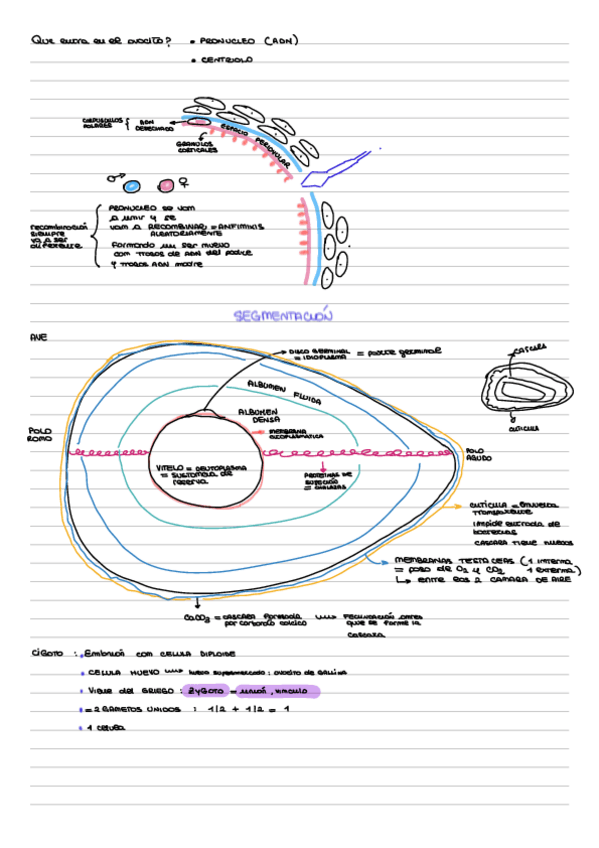 QUE ENTRA EN EL OVOCITO? • PRONUCLEO (ADN)
• CENTRIOLO
CORPUSCULOS POLARES { ADN DESECHADO
ESPACIO PERIVITELAR
GRANULOS CORTICALES
♂ ♀
RECOMBINACIÓN SIEMPRE VA A SER DIFERENTE
PRONUCLEO SE VAN
A UNIR Y SE
VAN A RECOMBINAR = ANFIMIXIS
ALEATORIAMENTE
FORMANDO UN SER NUEVO
CON TROZOS DE ADN DEL PADRE
Y TROZOS ADN MADRE
SEGMENTACIÓN
AVE
DISCO GERMINAL = PARTE GERMINAL
= IDIOPLASMA
CASCARA
CUTÍCULA
ALBUMEN FLUIDA
ALBUMEN DENSA
MEMBRANA
POLO ROMO
POLO AGUDO
VITELO = DEUTOPLASMA
= SUSTANCIA DE
RESERVA
PROTEINAS DE
SUJECIÓN
= CHALAZAS
CUTÍCULA = ENVUELTA
TRANSPARENTE
IMPIDE ENTRADA DE
BACTERIAS
CASCARA TIENE HUECOS
MEMBRANAS TESTACEAS (1 INTERNA
= PASO DE O2 Y CO2 1 EXTERNA)
↳ ENTRE LAS 2 CAMARA DE AIRE
CaCO3 = CASCARA FORMADA → FECUNDACIÓN ANTES
POR CARBONATO CALCICO QUE SE FORME LA
CASCARA
CIGOTO : EMBRION CON CELULA DIPLOIDE
• CELULA HUEVO → HUEVO SUPERMERCADO : OVOCITO DE GALLINA
• VIENE DEL GRIEGO : ZYGOTO = UNIÓN, VINCULO
• = 2 GAMETOS UNIDOS : 1/2 + 1/2 = 1
• 1 CELULA